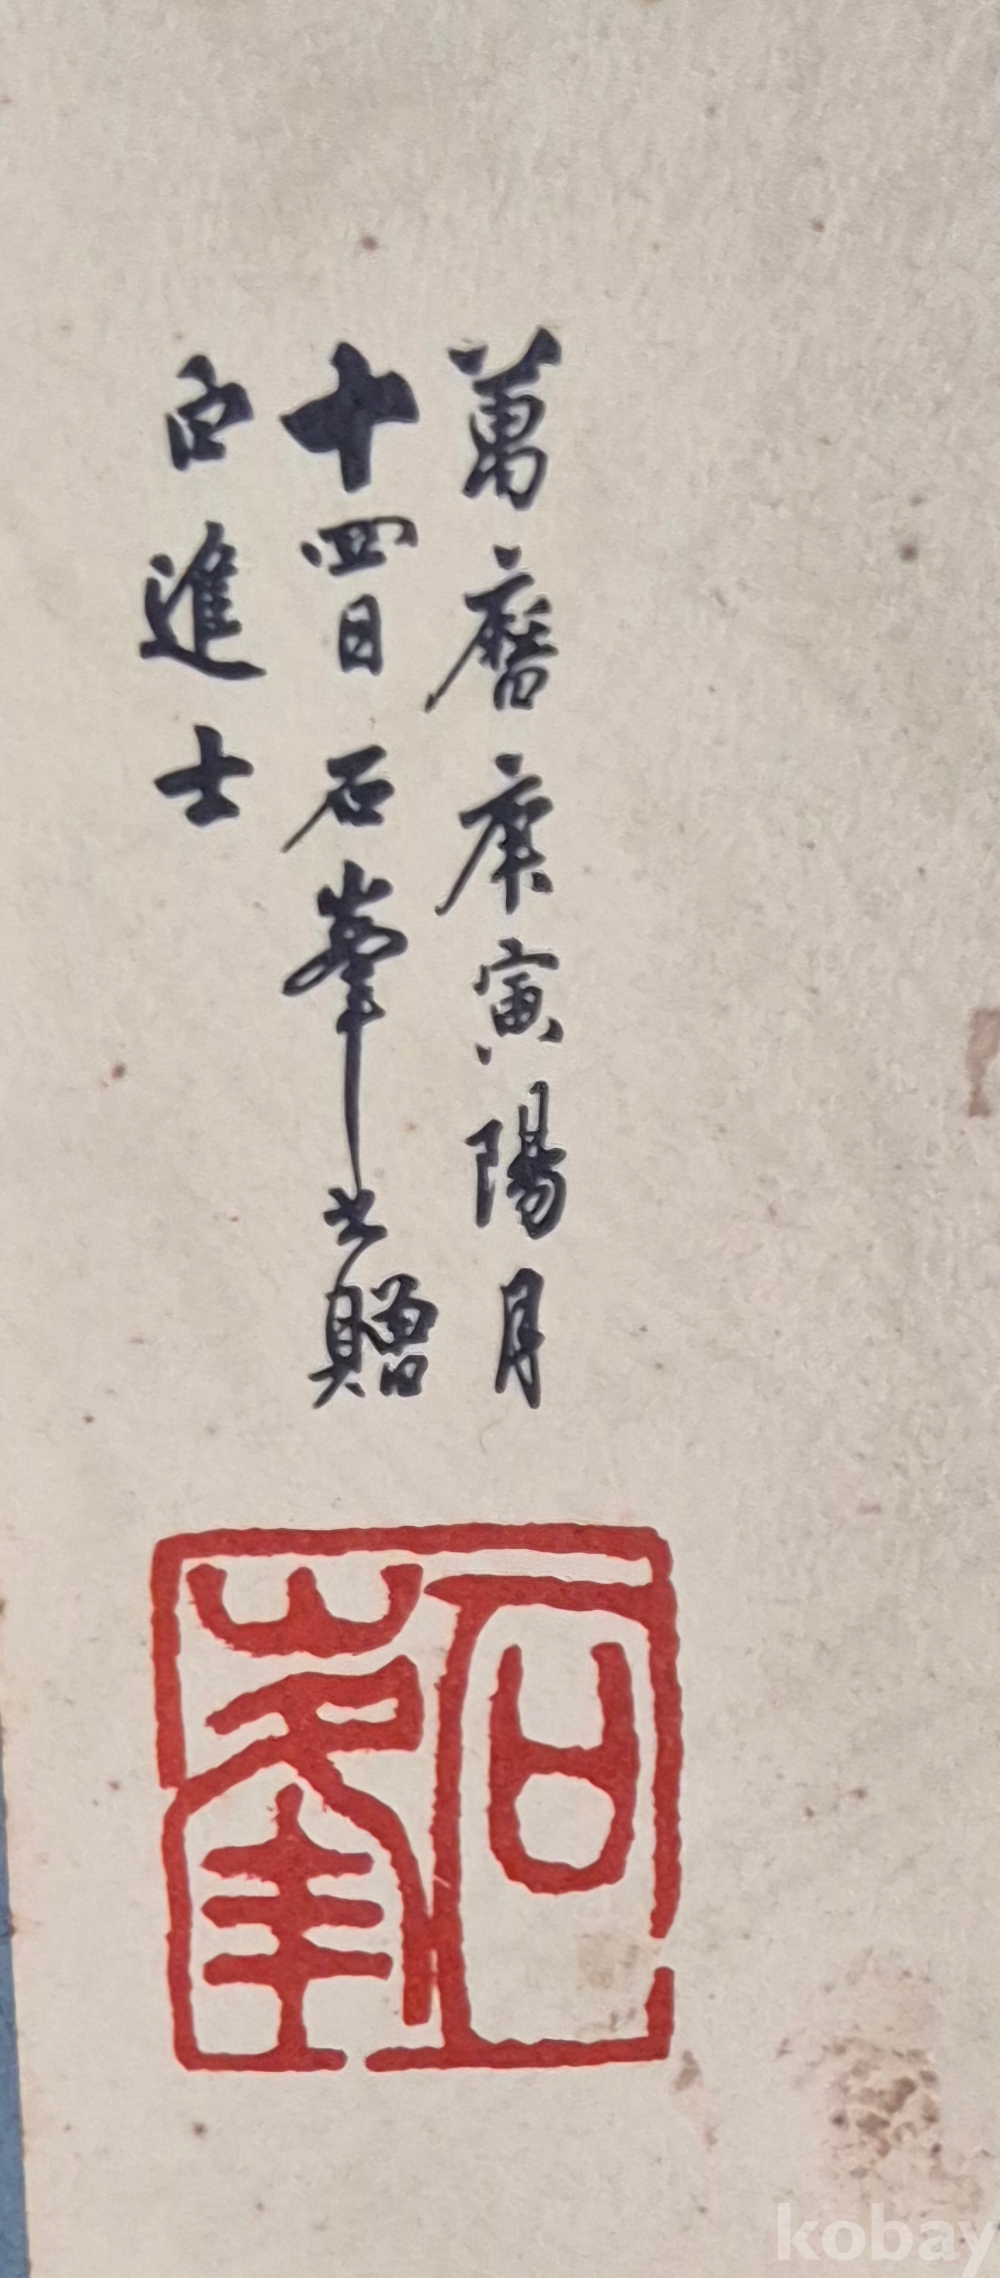 萬曆庚寅陽月
十四日石峯書贈
白進士
石峯
kobay